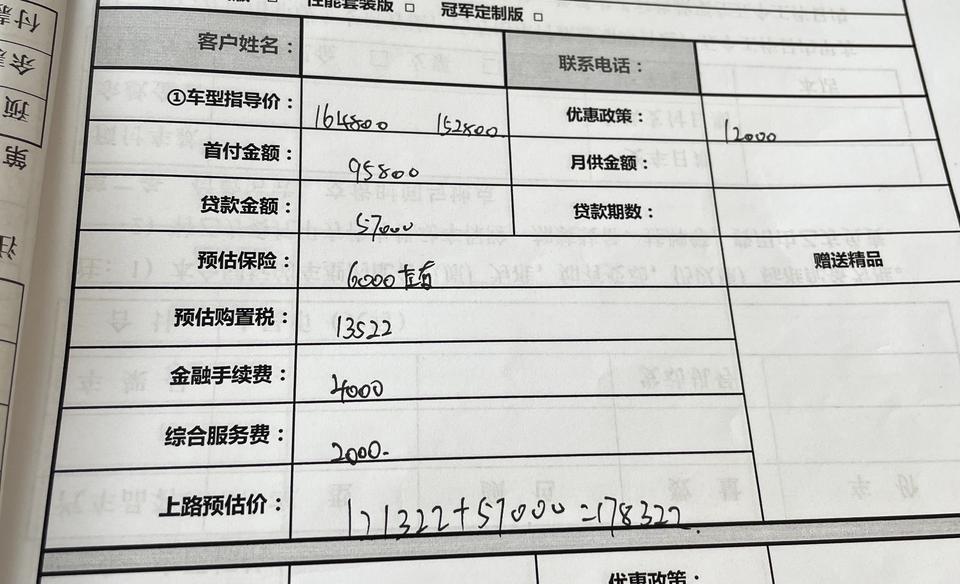 性能套装版 □ 冠军定制版 □
客户姓名： 联系电话：
①车型指导价： 164800 152800. 优惠政策： 12000
首付金额： 95800 月供金额：
贷款金额： 57000 贷款期数：
预估保险： 6000 赠送精品
预估购置税： 13522
金融手续费： 4000
综合服务费： 2000.
上路预估价： 121322+57000=178322.
优惠政策：
付
余
预
第